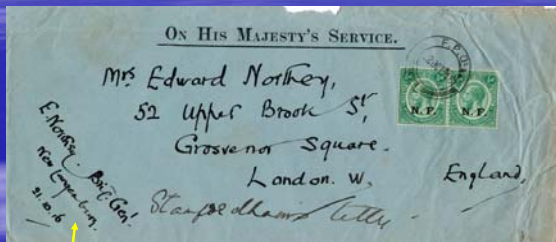 ON HIS MAJESTY'S SERVICE.
Mrs Edward Northey,
52 Upper Brook St,
Grosvenor Square.
London. W.
England.
N.F. N.F.
E. Northey. Brig Genl.
New Langenburg.
31.10.16